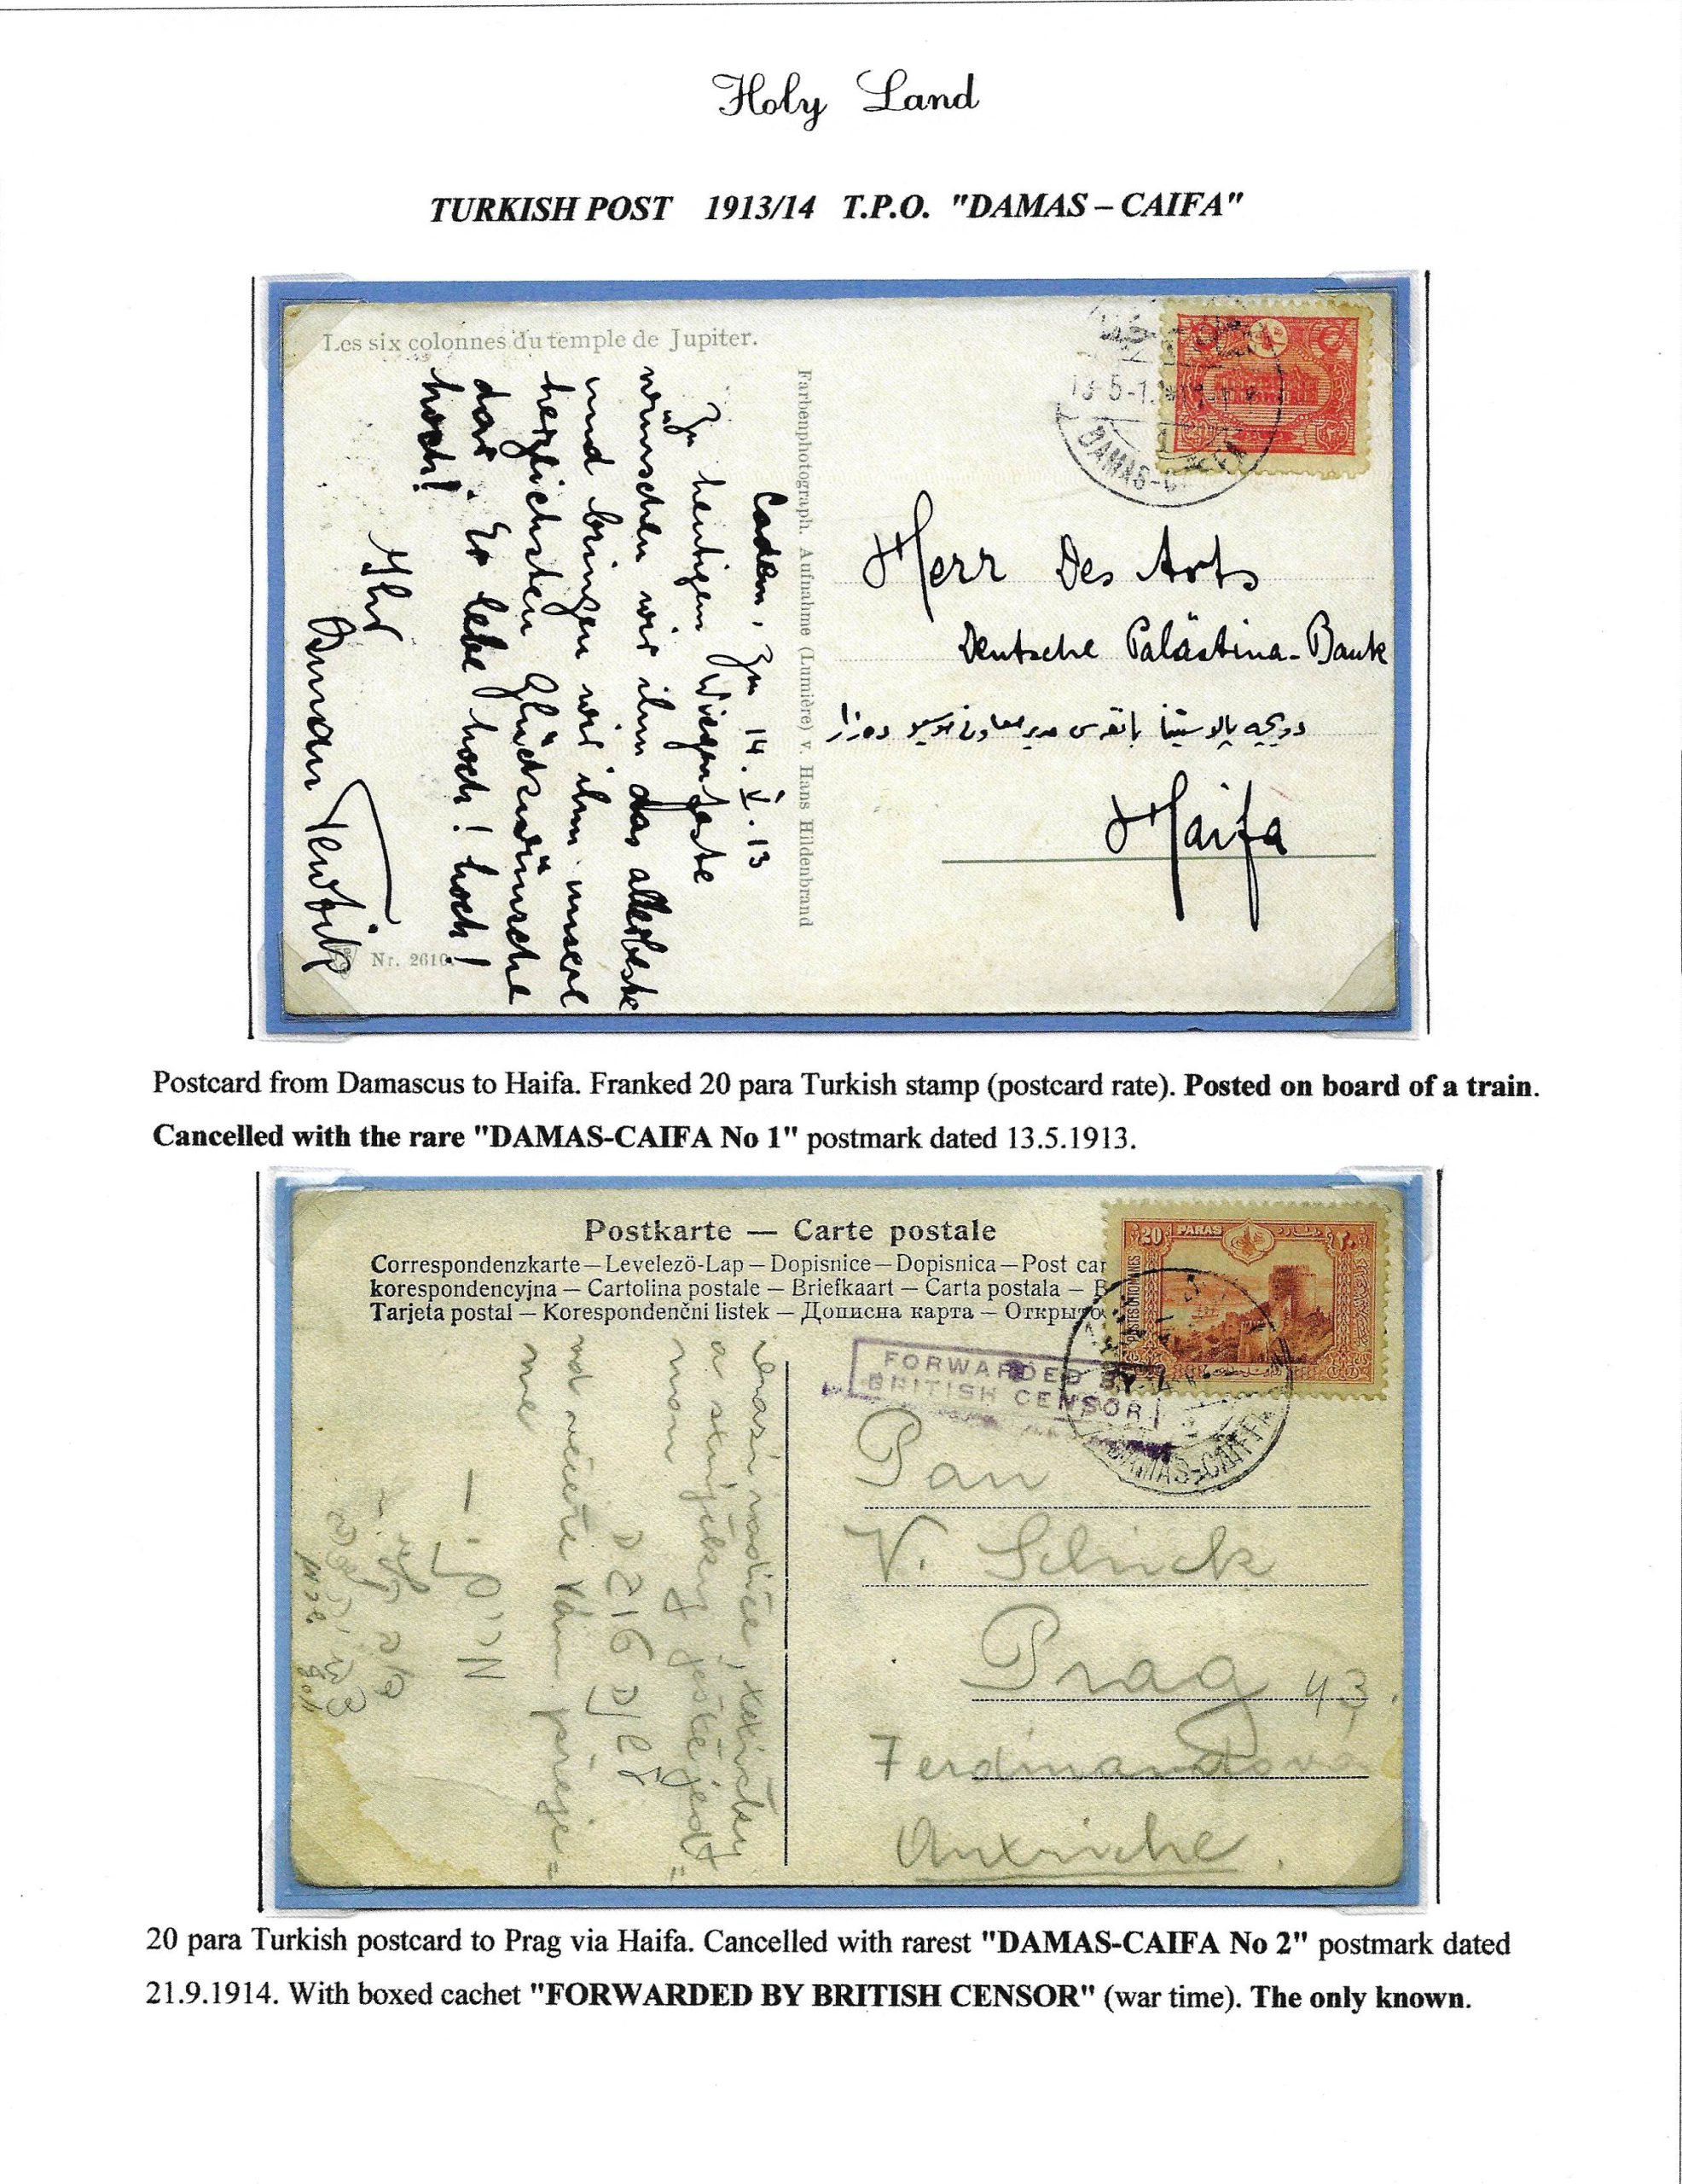 Holy Land
TURKISH POST 1913/14 T.P.O. "DAMAS – CAIFA"
Les six colonnes du temple de Jupiter.
Cadem, zum 14. V. 13
Zu heutigem Wiegenfeste
wünschen wir ihm das allerbeste
und bringen wir ihm unsere
herzlichsten Glückwünsche
dar. Er lebe hoch! hoch!
hoch!
Ihr
Nr. 2610.
Farbenphotograph. Aufnahme (Lumière) v. Hans Hildenbrand
13-5-1
DAMAS-C
Herr Des Arts
Deutsche Palästina-Bank
Haifa
Postcard from Damascus to Haifa. Franked 20 para Turkish stamp (postcard rate). Posted on board of a train.
Cancelled with the rare "DAMAS-CAIFA No 1" postmark dated 13.5.1913.
Postkarte — Carte postale
Correspondenzkarte — Levelező-Lap — Dopisnice — Dopisnica — Post car
korespondencyjna — Cartolina postale — Briefkaart — Carta postala — B
Tarjeta postal — Korespondenčni listek — Дописна карта — Открыто
20 PARAS ٢٠
POSTES OTTOMANES
FORWARDED BY
BRITISH CENSOR
DAMAS-CAIFFA
a strýčky ještě jedt=
mou
nd večeře Vám přeje=
me
Pan
V.
Prag 43
Ferdinandova
20 para Turkish postcard to Prag via Haifa. Cancelled with rarest "DAMAS-CAIFA No 2" postmark dated
21.9.1914. With boxed cachet "FORWARDED BY BRITISH CENSOR" (war time). The only known.